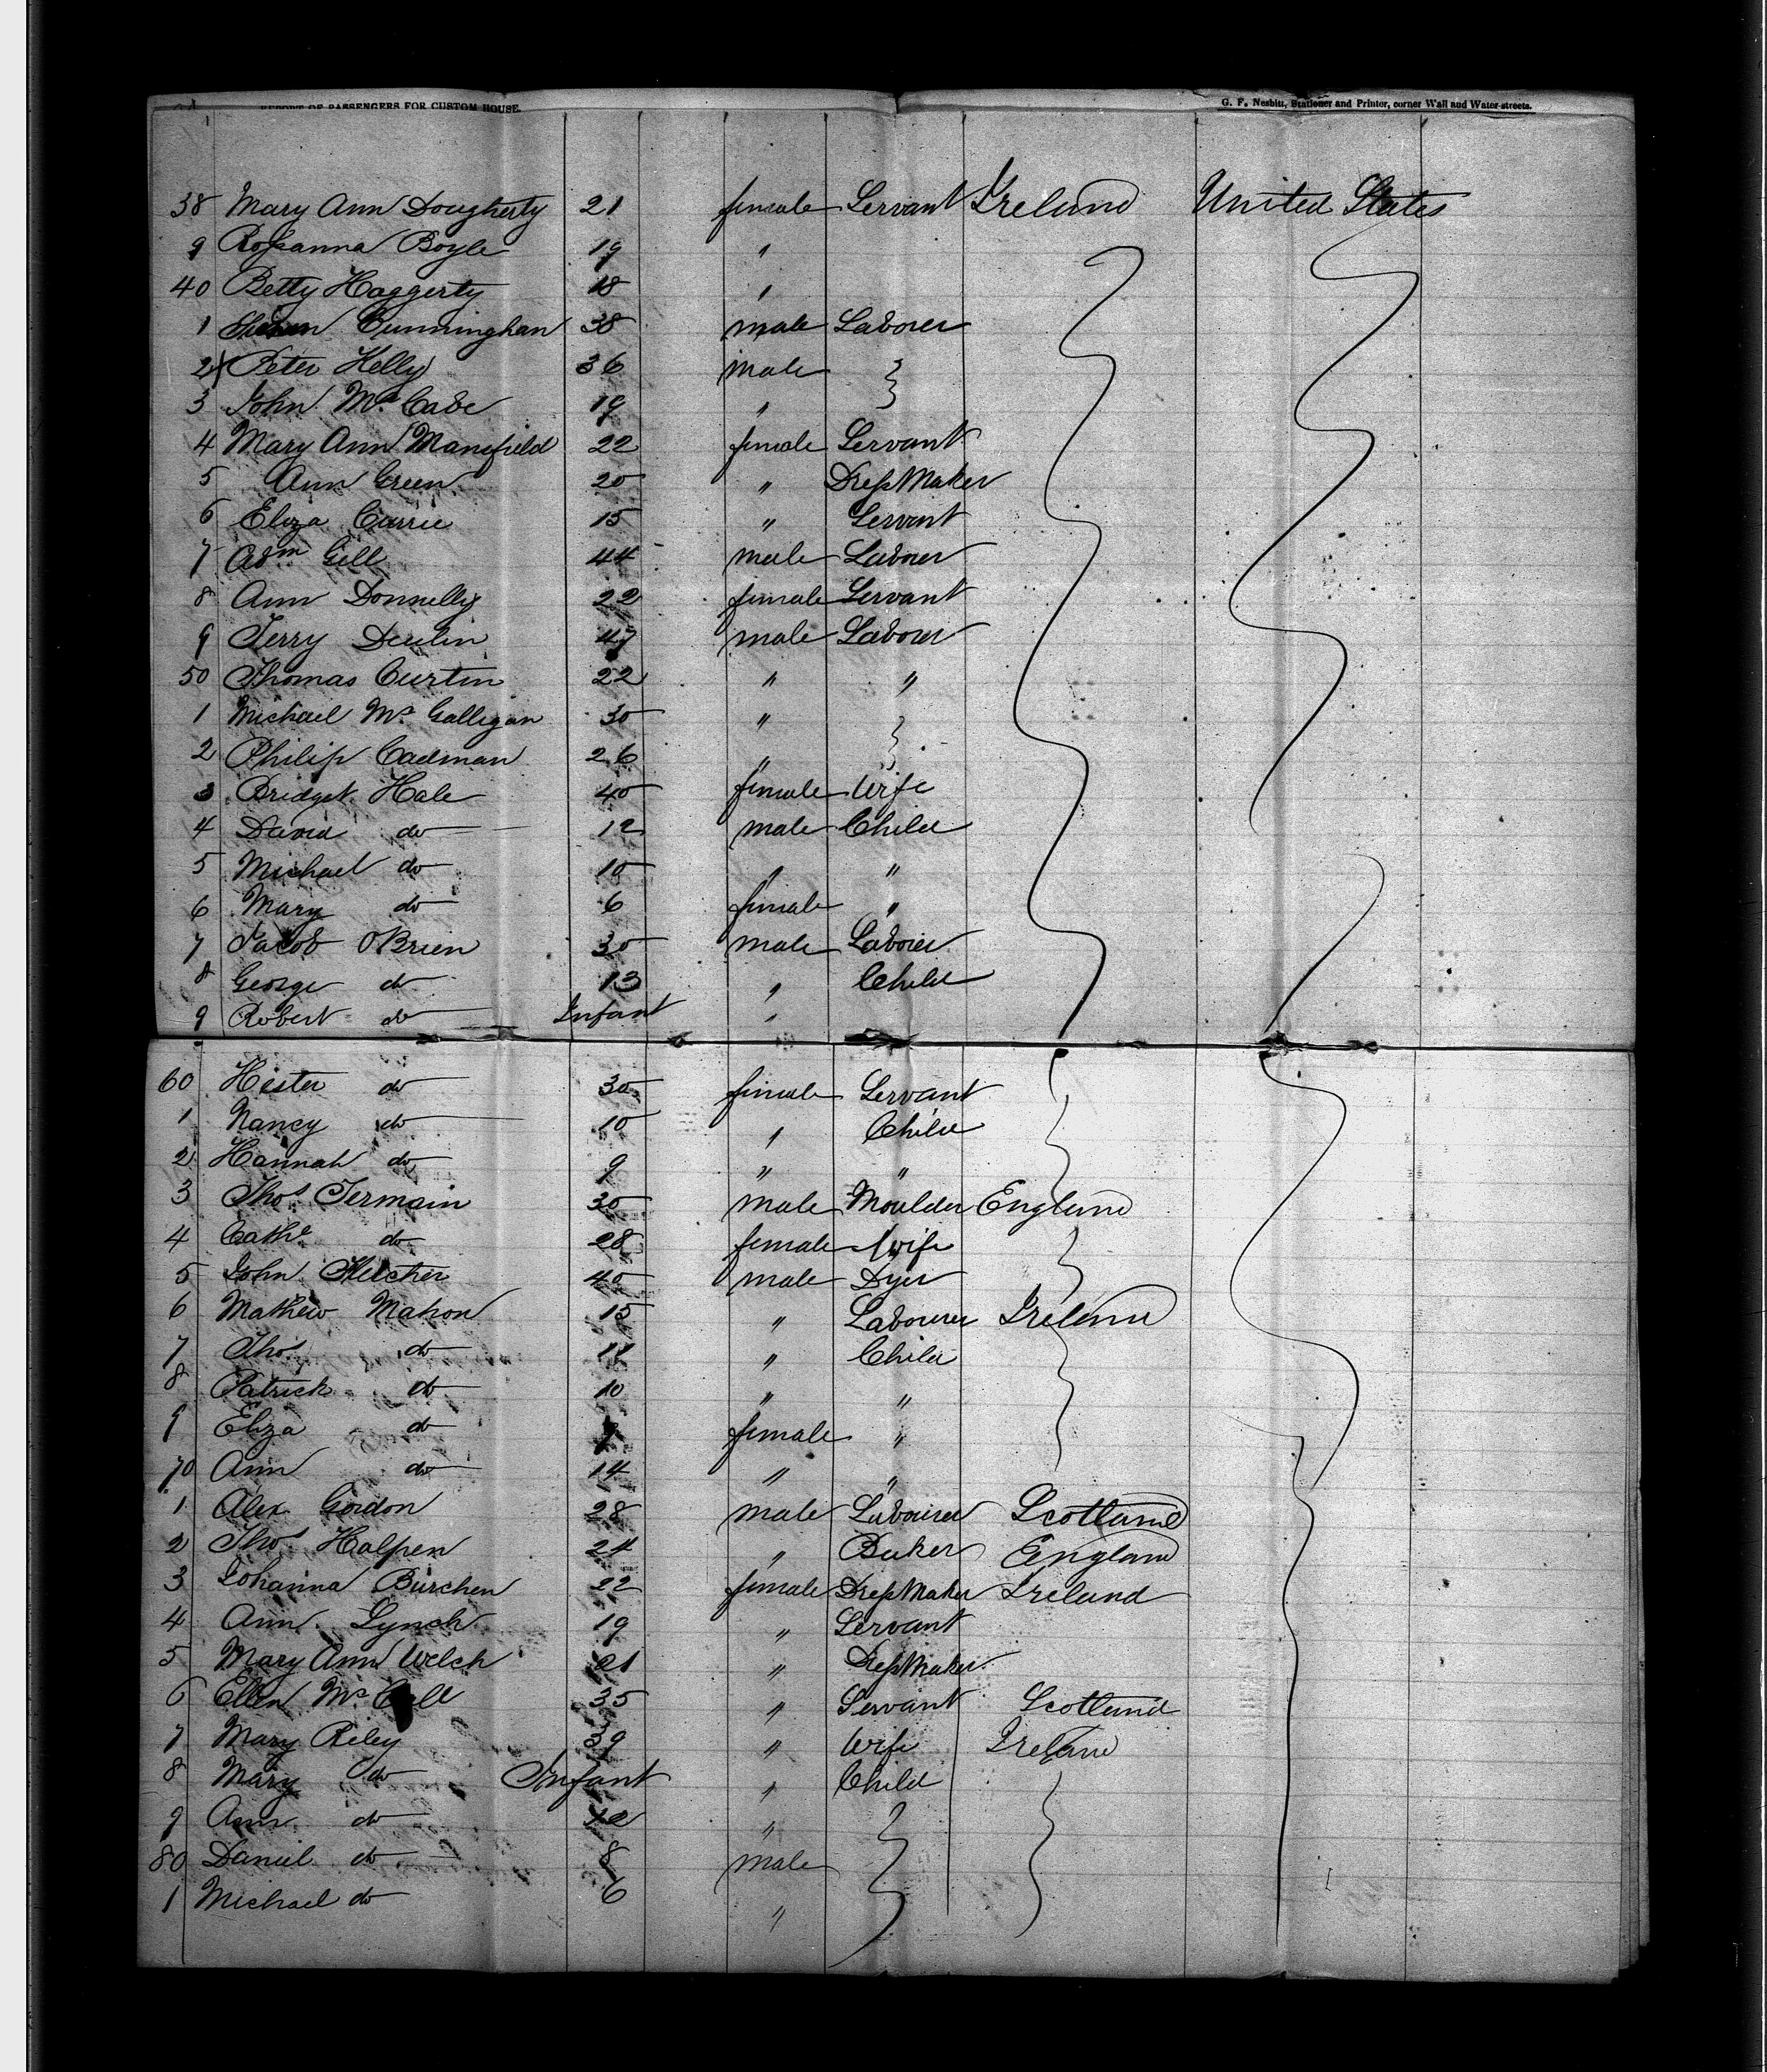 REPORT OF PASSENGERS FOR CUSTOM HOUSE. G. F. Nesbitt, Stationer and Printer, corner Wall and Water-streets.
38 Mary Ann Dougherty 21 female Servant Ireland United States
9 Rosanna Boyle 19 "
40 Betty Haggerty 18 "
1 Cunninghan 38 male Laborer
2 Peter Kelly 36 male
3 John Mc Cabe 19 "
4 Mary Ann Mansfield 22 female Servant
5 Ann Green 20 " Dress Maker
6 Eliza Currie 15 " Servant
7 Adm Gill 44 male Laborer
8 Ann Donnelly 22 female Servant
9 Terry Devlin 47 male Laborer
50 Thomas Curtin 22 " "
1 Michael Mc Galligan 30 "
2 Philip Cadman 26 "
3 Bridget Hale 40 female Wife
4 David do 12 male Child
5 Michael do 10 " "
6 Mary do 6 female "
7 Jacob OBrien 30 male Laborer
8 George do 13 " Child
9 Robert do Infant "
60 Hester do 30 female Servant
1 Nancy do 10 " Child
2 Hannah do 9 " "
3 Thos Jermain 30 male Moulder England
4 Cathe do 28 female Wife
5 John Fletcher 40 male Dyer
6 Mathew Mahon 15 " Labourer Ireland
7 Thos do 11 " Child
8 Patrick do 10 " "
9 Eliza do female "
70 Ann do 14 " "
1 Alex Gordon 28 male Labourer Scotland
2 Thos Halpen 24 " Baker England
3 Johanna Burchen 22 female Dress Maker Ireland
4 Ann Lynch 19 " Servant
5 Mary Ann Welch 21 " Dress Maker
6 Ellen Mc 35 " Servant Scotland
7 Mary Riley 39 " Wife Ireland
8 Mary do Infant " Child
9 Ann do 12 "
80 Daniel do 8 male
1 Michael do 6 "